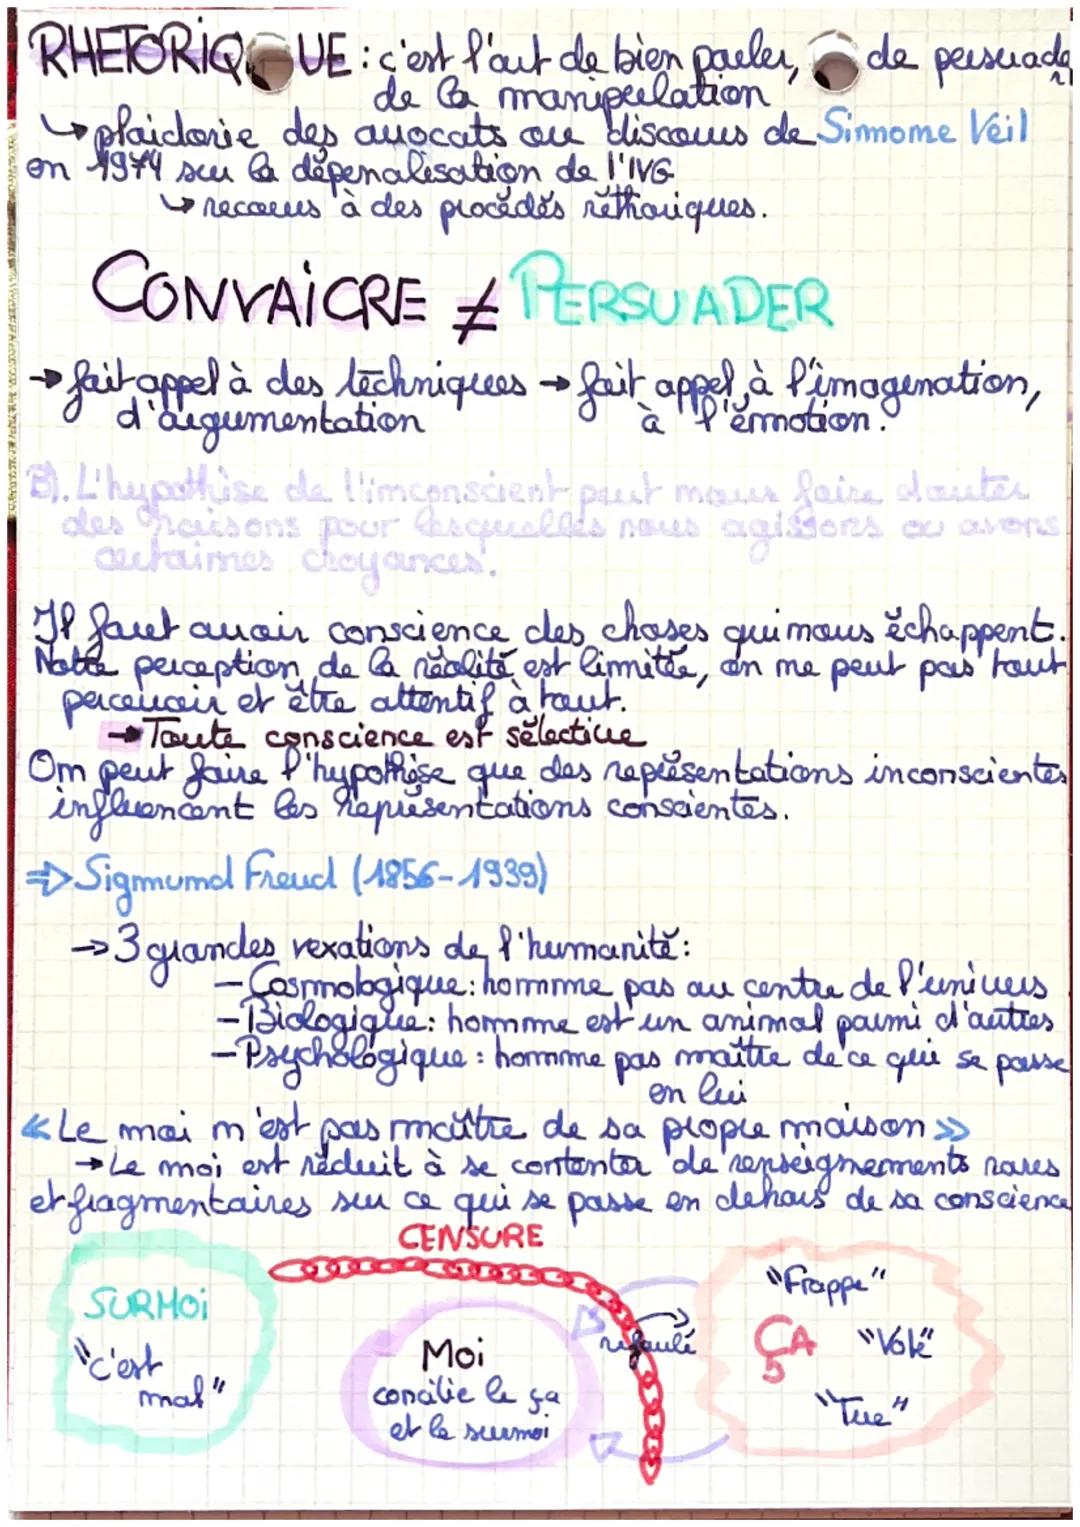 RHETORIQUE : c'est l'art de bien parler, de persuader
de la manipulation
↳ plaidorie des avocats ou discours de Simmome Veil
en 1974 sur la dépenalisation de l'IVG
↳ recours à des procédés réthoriques.
CONVAICRE ≠ PERSUADER
→ fait appel à des téchniques → fait appel à l'imagination,
d'argumentation à l'émotion.
B). L'hypothèse de l'inconscient peut nous faire douter
des raisons pour lesquelles nous agissons ou avons
certaines croyances.
Il faut avoir conscience des choses qui nous échappent.
Notre perception de la réalité est limitée, on ne peut pas tout
percevoir et être attentif à tout.
→ Toute conscience est sélective
On peut faire l'hypothèse que des représentations inconscientes
influencent les représentations conscientes.
⇒ Sigmund Freud (1856-1939)
→ 3 grandes vexations de l'humanité :
- Cosmologique : homme pas au centre de l'univers
- Biologique : homme est un animal parmi d'autres
- Psychologique : homme pas maître de ce qui se passe
en lui
« Le moi n'est pas maître de sa propre maison »
→ Le moi est réduit à se contenter de renseignements rares
et fragmentaires sur ce qui se passe en dehors de sa conscience
CENSURE
SURMOI
"c'est
mal"
Moi
concilie le ça
et le surmoi
refoulé
"Frappe"
ÇA "Vole"
"Tue"